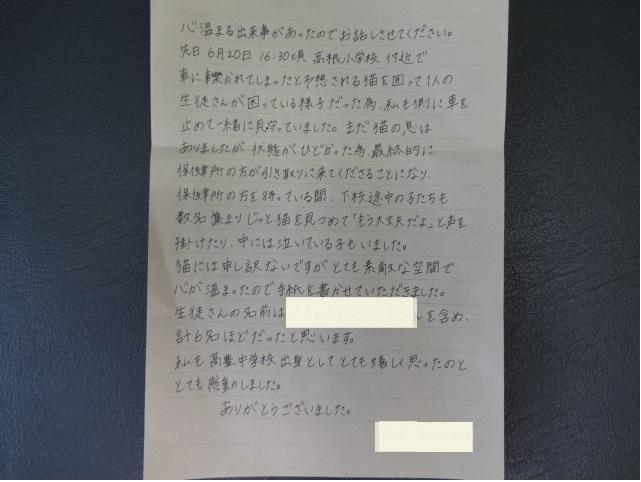 心温まる出来事があったのでお話しさせてください。
先日6月20日 16:30頃 高根小学校 付近で
車に轢かれてしまったと予想される猫を囲って1人の
生徒さんが困っている様子だった為、私も側に車を
止めて一緒に見守っていました。まだ猫の息は
ありましたが状態がひどかった為、最終的に
保健所の方が引き取りに来てくださることになり、
保健所の方を待っている間、下校途中の子たちも
数名集まりじっと猫を見つめて「もう大丈夫だよ」と声を
掛けたり、中には泣いている子もいました。
猫には申し訳ないですがとても素敵な空間で
心が温まったので手紙を書かせていただきました。
生徒さんの名前は
を含め、
計6名ほどだったと思います。
私も高豊中学校出身としてとても嬉しく思ったのと
とても感動しました。
ありがとうございました。